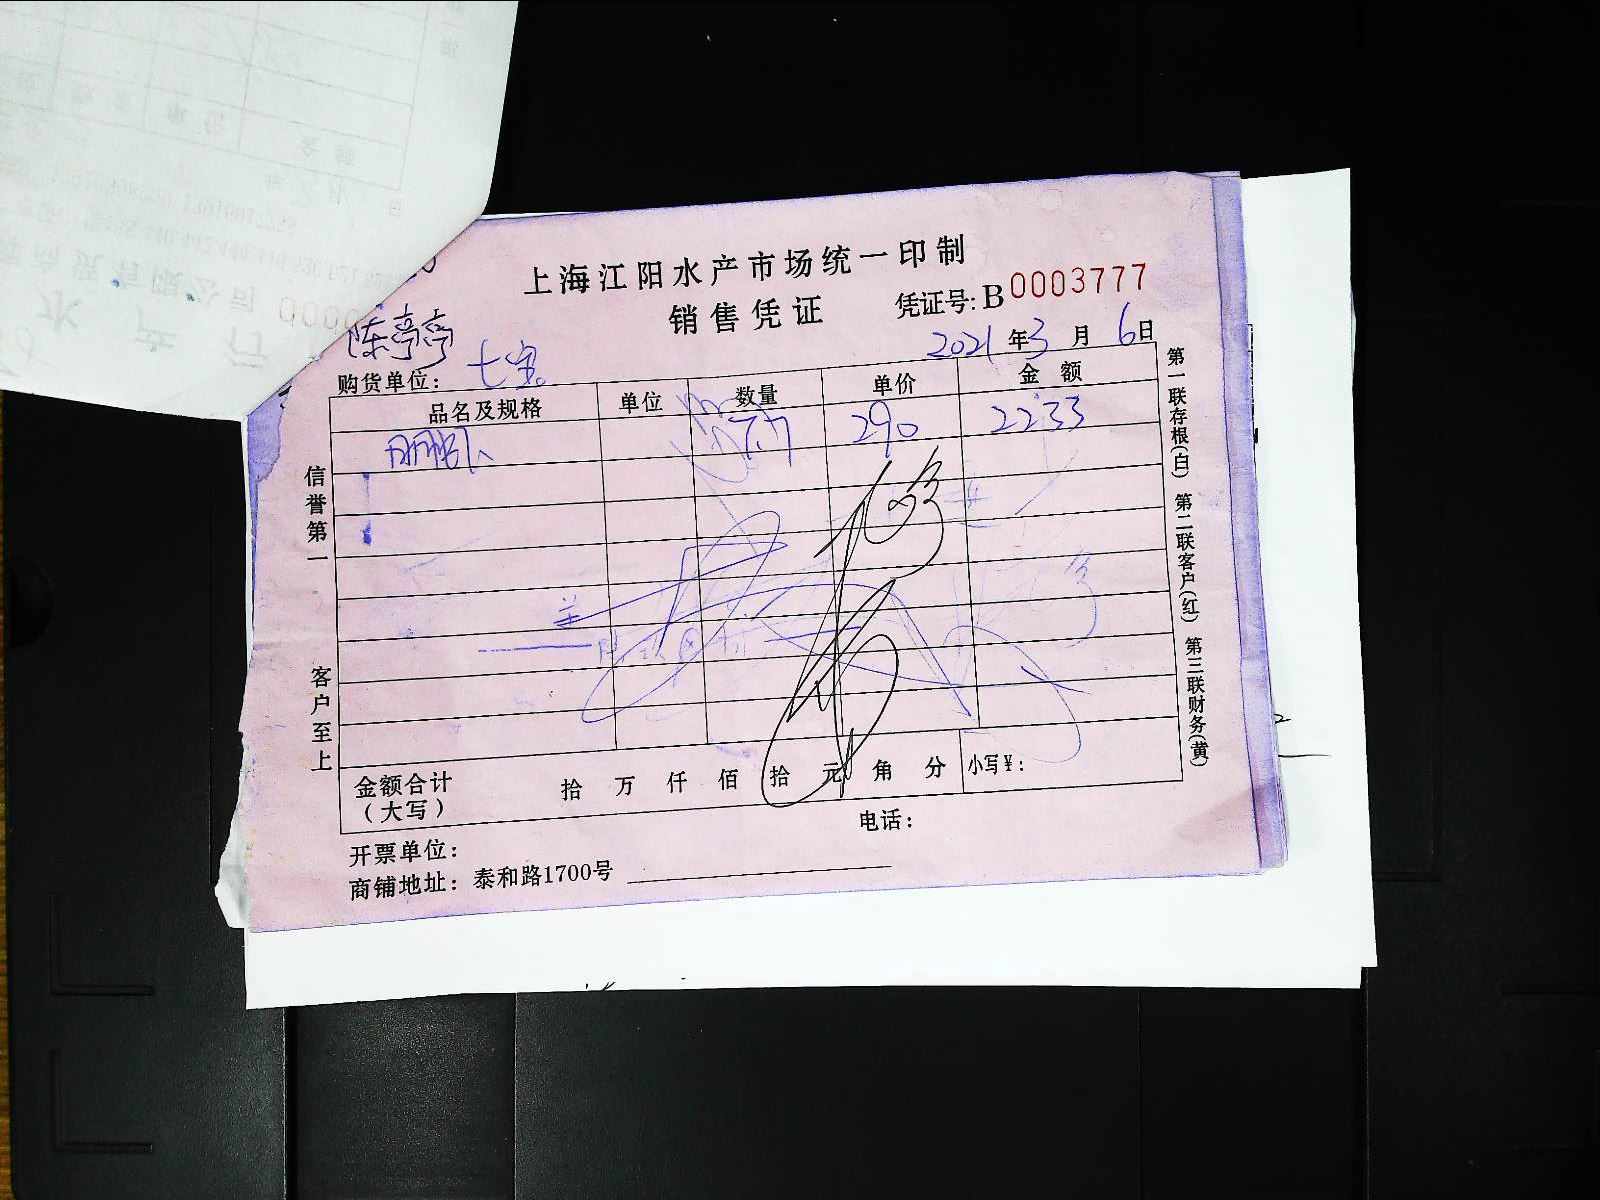 上海江阳水产市场统一印制
销售凭证 凭证号:B0003777
陈亭亭
2021年3月6日
购货单位: 七宝
品名及规格 单位 数量 单价 金额
7.7 290 2233
金额合计 拾 万 仟 佰 拾 元 角 分 小写¥:
(大写)
电话:
开票单位:
商铺地址: 泰和路1700号
信誉第一 客户至上
第一联存根(白) 第二联客户(红) 第三联财务(黄)